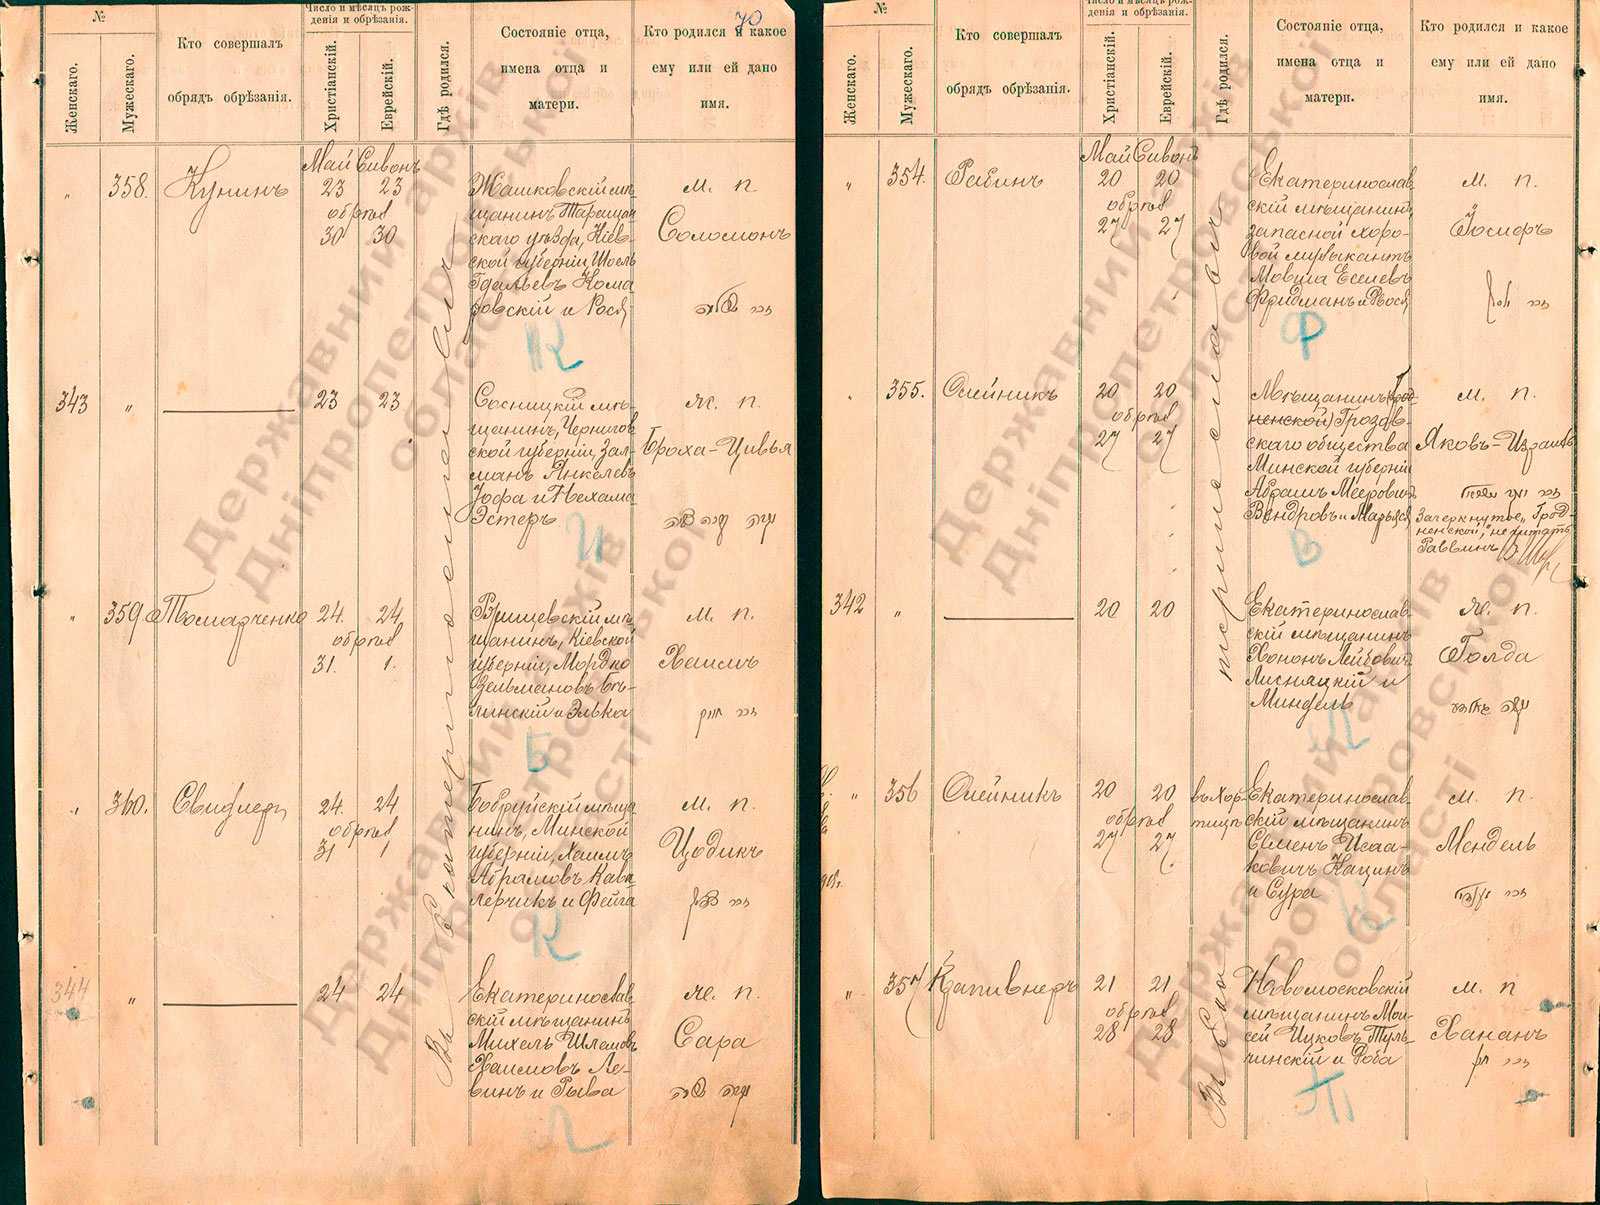 70
№
Женскаго.
Мужескаго.
Кто совершалъ
обрядъ обрѣзанія.
Число и мѣсяцъ рож-
денія и обрѣзанія.
Христіанскій.
Еврейскій.
Гдѣ родился.
Состояніе отца,
имена отца и
матери.
Кто родился и какое
ему или ей дано
имя.
Въ Екатеринославѣ
"
358.
Кунинъ
Май Сивонъ
23 23
обрѣз
30 30
Жашковскій мѣ-
щанинъ Таращан
скаго уѣзда, Кіев-
ской губерніи Шоель
Гдальевъ Кома
ровскій и Рося
м. п.
Соломонъ
К
343
"
23 23
Сосницкій мѣ-
щанинъ, Чернигов
ской губерніи, Зал-
манъ Янкелевъ
Іофа и Нехама
Эстеръ
ж. п.
Броха-Цивья
И
"
359
Томарченко
24. 24
обрѣз
31. 1.
Ржищевскій мѣ
щанинъ, Кіевской
губерніи, Мордко
Зельмановъ Бѣ-
линскій и Элька
м. п.
Хаимъ
Б
"
360.
Свидлеръ
24. 24
обрѣз
31 1
Бобруйскій мѣща
нинъ, Минской
губерніи, Хаимъ
Абрамовъ Кава
лерчикъ и Фейга
м. п.
Цодикъ
К
344
"
24 24
Екатеринослав
скій мѣщанинъ
Михель Шлемовъ
Хаимовъ Ле-
винъ и Рыва
ж. п.
Сара
Л
№
Женскаго.
Мужескаго.
Кто совершалъ
обрядъ обрѣзанія.
Число и мѣсяцъ рож-
денія и обрѣзанія.
Христіанскій.
Еврейскій.
Гдѣ родился.
Состояніе отца,
имена отца и
матери.
Кто родился и какое
ему или ей дано
имя.
Въ Екатеринославѣ
"
354.
Рабинъ
Май Сивонъ
20 20
обрѣз
27 27
Екатеринослав-
скій мѣщанинъ,
запасной хоро-
вой музыкантъ
Мовша Еселевъ
Фридманъ и Двося
м. п.
Іосифъ
Ф
355.
Олейникъ
20 20
обрѣз
27 27
Мѣщанинъ Грод-
ненской Грозав-
скаго общества
Минской губерніи
Абрамъ Мееровичъ
Вендровъ и Марьяся
м. п.
Яковъ-Израиль
Зачеркнутое „Грод-
ненской," не читать
Раввинъ
В
342
"
20 20
Екатеринослав-
скій мѣщанинъ
Хононъ Лейбовичъ
Лисняцкій и
Миндель
ж. п.
Голда
Л
"
356
Олейникъ
20 20
обрѣз
27 27.
въ Хор-
тицѣ
Екатеринослав-
скій мѣщанинъ
Семенъ Исаа-
ковичъ Кацинъ
и Сура
м. п.
Мендель
К
"
357
Крапивнеръ
21 21
обрѣз
28 28
Новомосковскій
мѣщанинъ Мои-
сей Ицковъ Туль-
чинскій и Доба
м. п
Хананъ
Т
Державний архів
Дніпропетровської
області